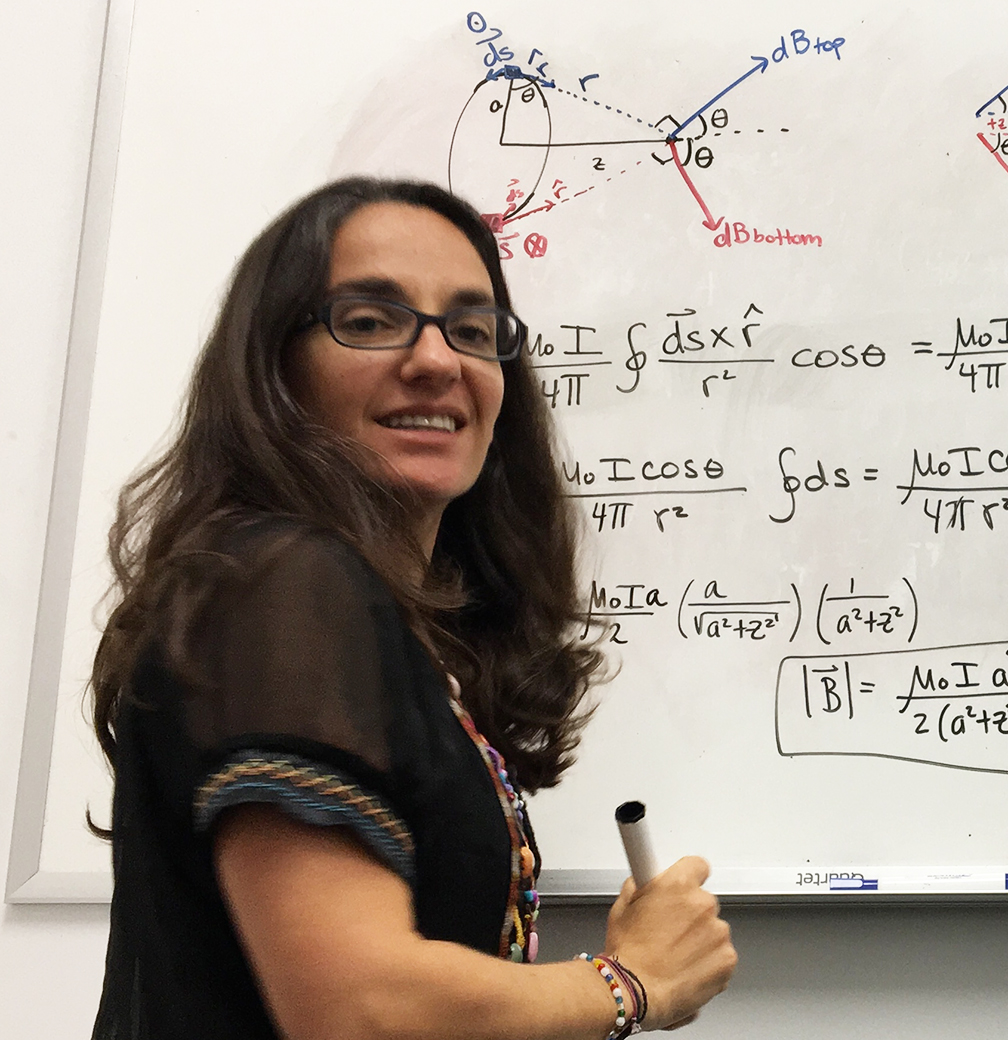 ds r̂ r dB top
a θ θ
z θ
+z
ds r̂
dB bottom
s ⊗
μ₀ I / 4π ∮ ds⃗ x r̂ / r² cosθ = μ₀ I / 4π
μ₀ I cosθ / 4π r² ∮ ds = μ₀ I c / 4π r²
μ₀Ia / 2 (a / √a²+z²) (1 / a²+z²)
|B⃗| = μ₀ I a / 2(a²+z
Quartet